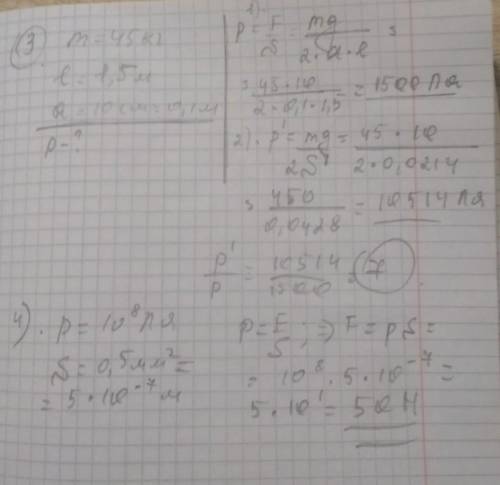 ③ m = 45 кг
l = 1,5 м
a = 10 см = 0,1 м
p - ?
1).
p = F/S = mg/(2·a·l) =
= 45·10/(2·0,1·1,5) = 1500 Па
2). p' = mg/2S' = 45·10/(2·0,0214)
= 450/0,0428 = 10514 Па
p'/p = 10514/1500 = 7
4). p = 10⁸ Па
S = 0,5 мм² =
= 5·10⁻⁷ м
p = F/S ; ⇒ F = pS =
= 10⁸ · 5·10⁻⁷ =
5·10¹ = 50 Н